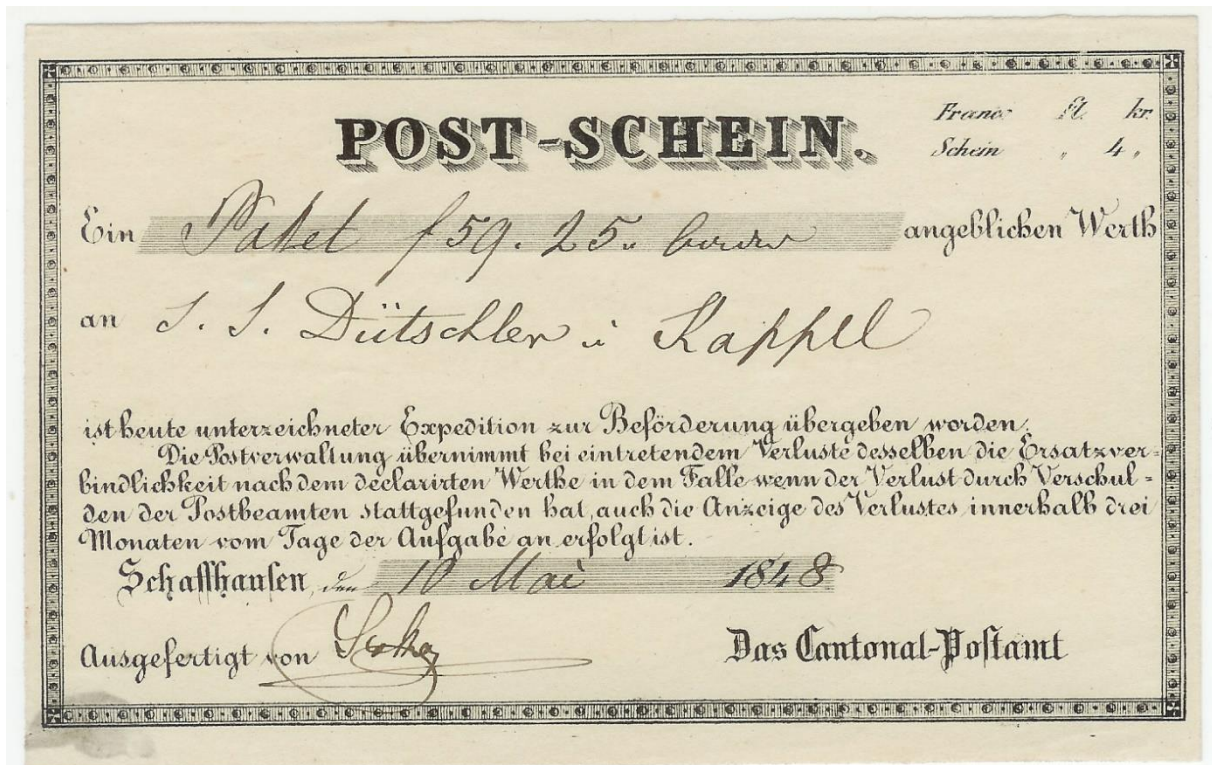 POST-SCHEIN.
Franco fl. kr.
Schein " 4 "
Ein Paket f 59. 25. angeblichen Werth
an J. J. Dütschler i Kappel
ist heute unterzeichneter Expedition zur Beförderung übergeben worden.
Die Postverwaltung übernimmt bei eintretendem Verluste desselben die Ersatzver-
bindlichkeit nach dem declarirten Werthe in dem Falle wenn der Verlust durch Verschul-
den der Postbeamten stattgefunden hat, auch die Anzeige des Verlustes innerhalb drei
Monaten vom Tage der Aufgabe an erfolgt ist.
Schaffhausen, den 10 Mai 1848
Ausgefertigt von
Das Cantonal-Postamt